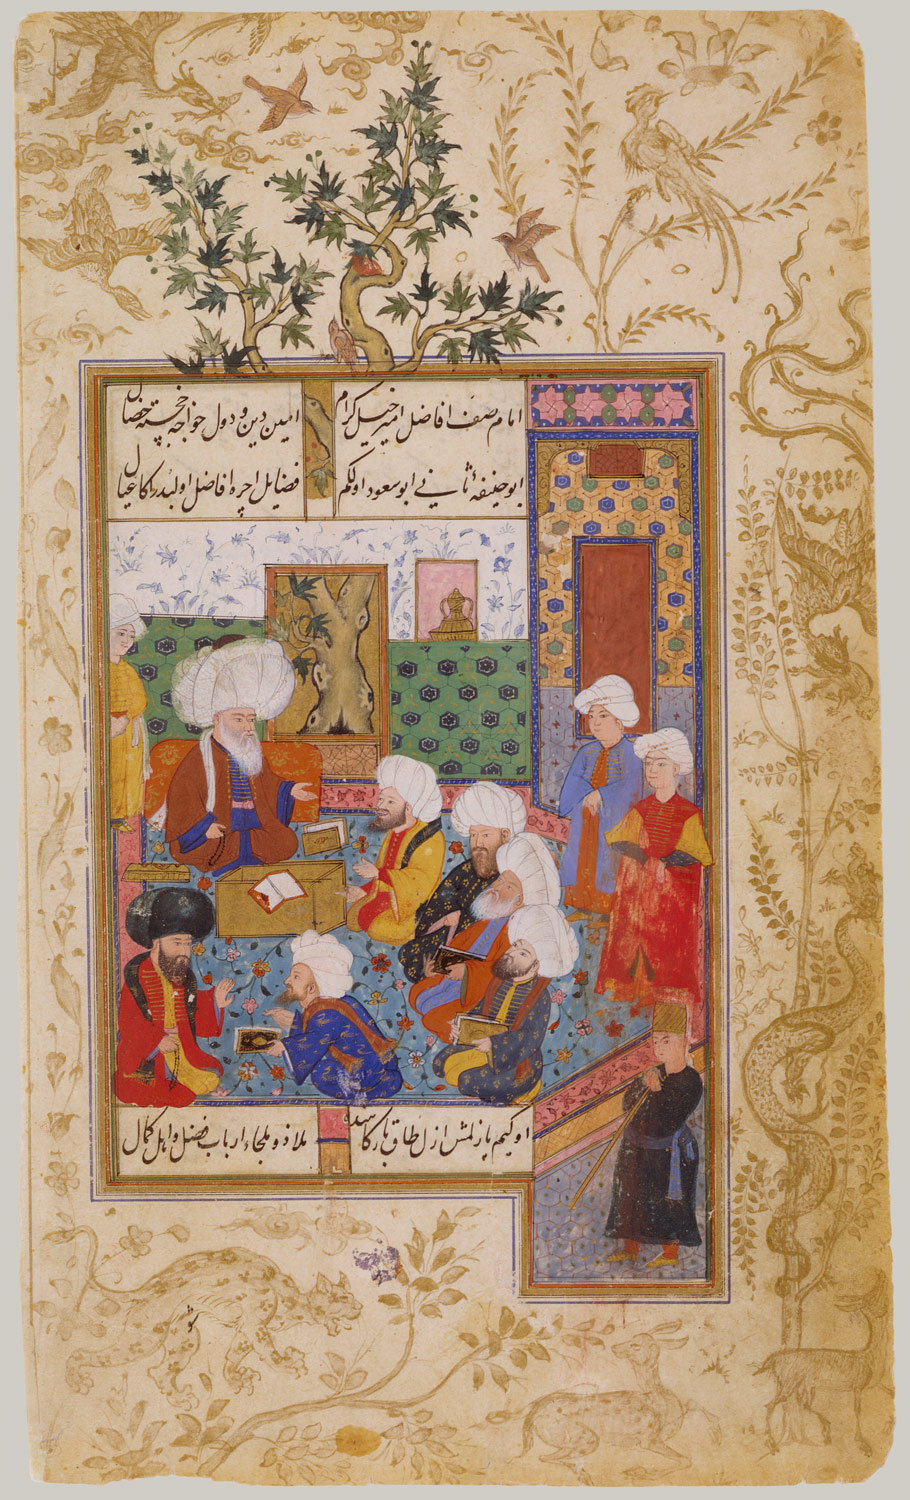 امام صف افاضل امیر خیل کرام امین دین و دول خواجه خجسته خصال
ابو حنیفهٔ ثانی ابو سعود اولکم فضایل اچره افاضل اولبدر اکا عیال
اوکیم یازلمش ازل طاق ملاذ و ملجاء ارباب فضل و اهل کمال